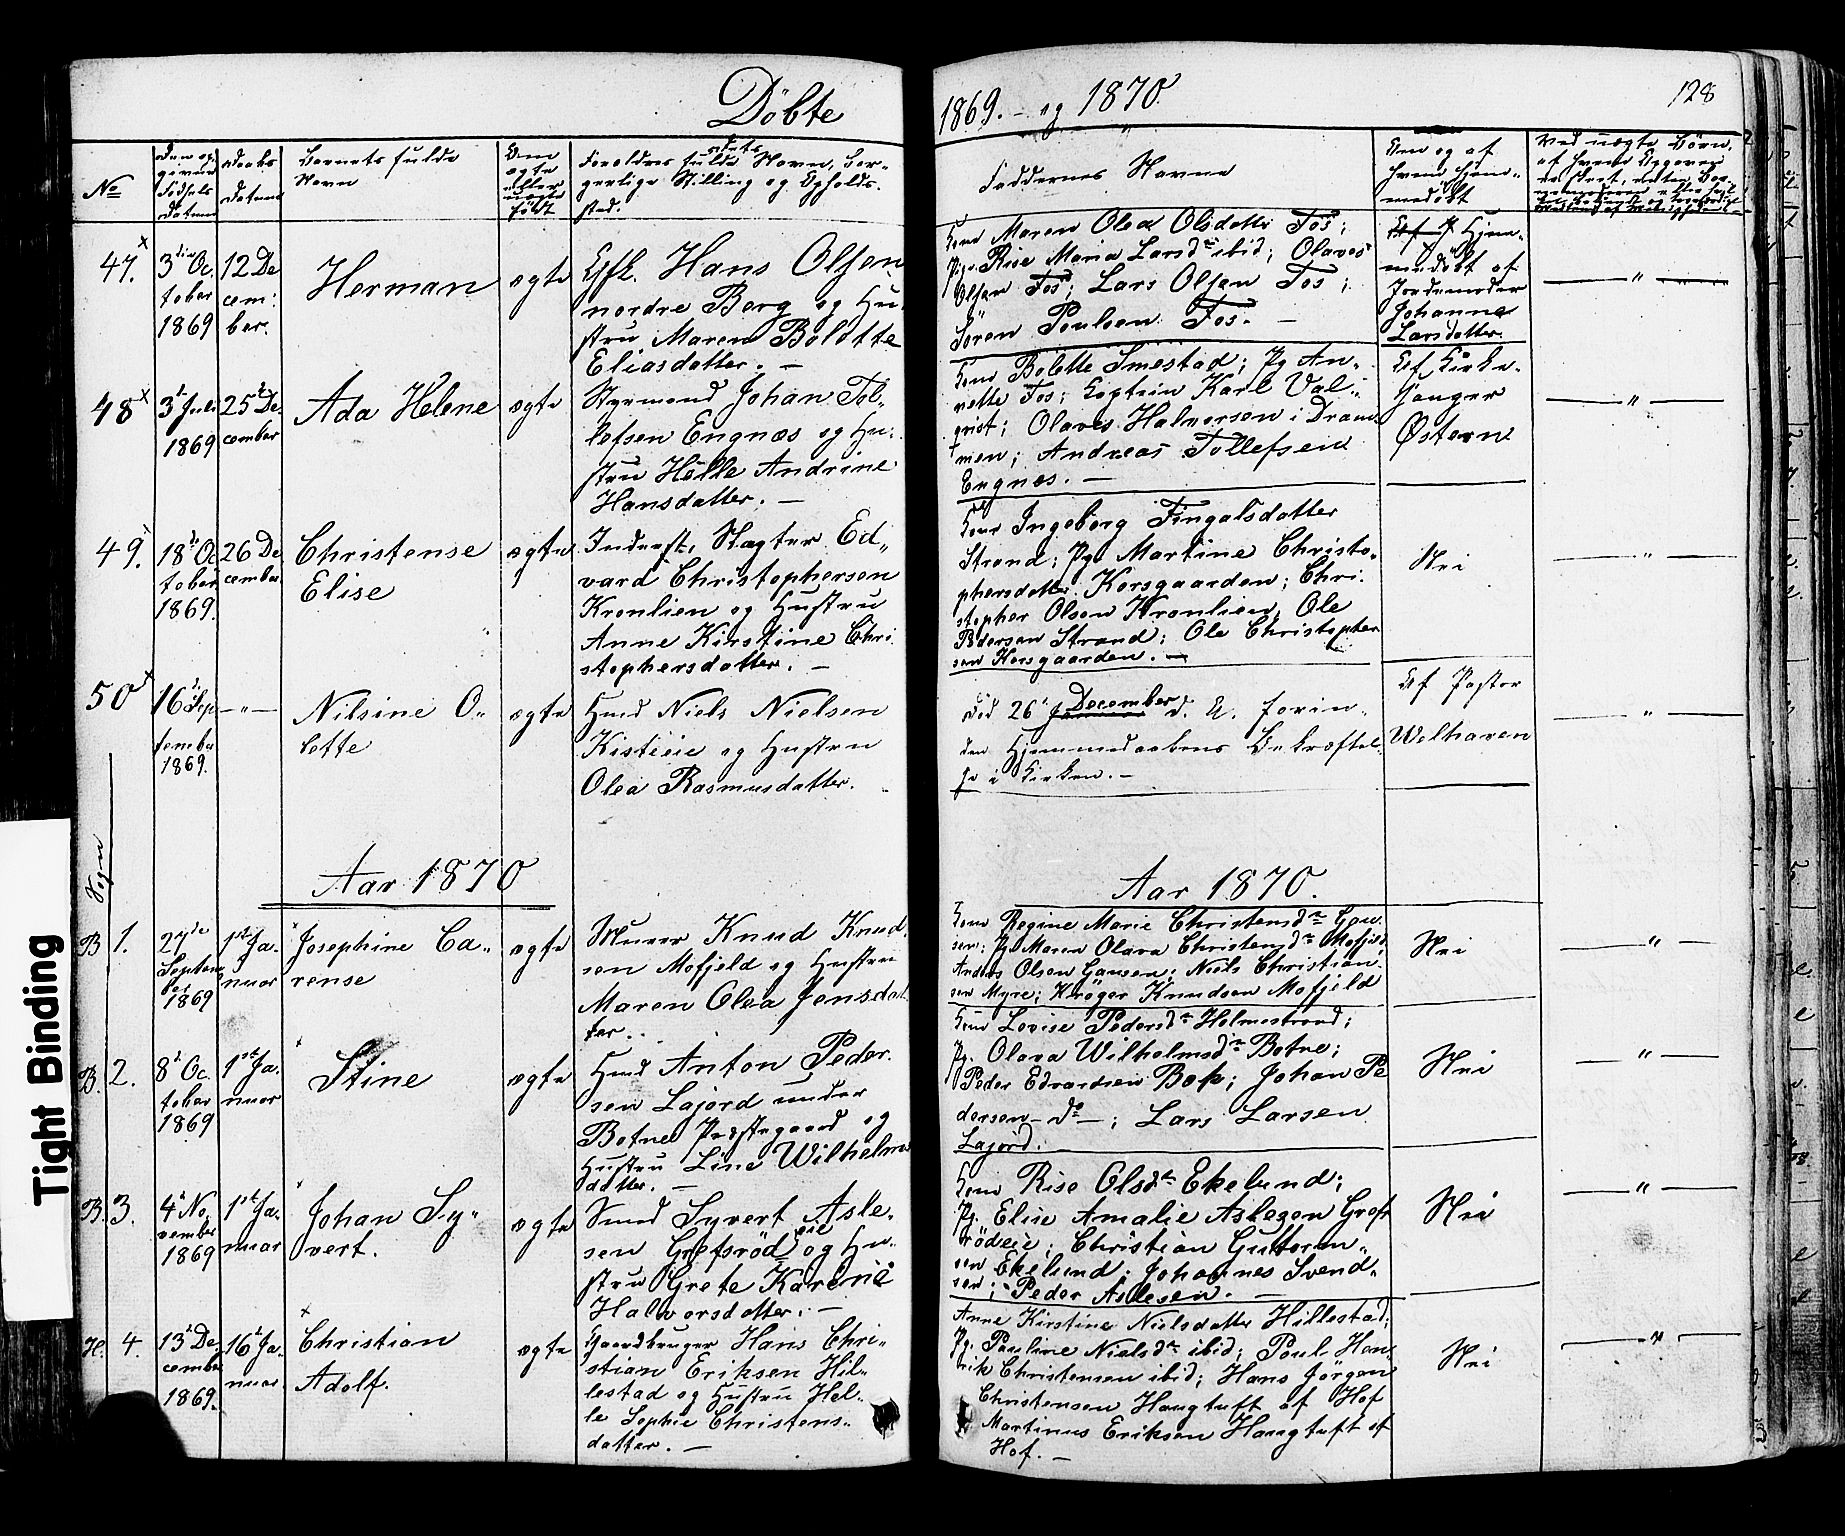 Döbte
1869. - og 1870.
128
No
Den op-
givne
Födsels
Datum
Daabs
Datum
Barnets fulde
Navn
Om
ægte
eller
uægte
födt
Forældres fulde Navn, Bor-
gerlige Stilling og Opholds-
sted.
Faddernes Navne
Om og af
hvem hjem-
medöbt
47.
3die Oc.
tober
1869
12 De
cem:
ber.
Herman
ægte
Gfk. Hans Olsen
nordre Berg og Hu-
stru Maren Bolette
Eliasdatter. -
Kone Maren Olea Olsdatter Fos;
Pige Rise Maria Larsdr ibid; Olaves
Olsen Fos; Lars Olsen Fos;
Sören Poulsen Fos. -
Hjem-
medöbt af
Jordemoder
Johanne
Larsdatter.
— " —
48
3d Juli
1869
25d De-
cember
Ada Helene
ægte
Styrmand Johan Tol-
lefsen Engnæs og Hu-
stru Helle Andrine
Hansdatter. -
Kone Bolette Smestad; Pg An-
nette Fos; Captein Karl Val-
qvist; Olaves Halvorsen i Dram-
men; Andreas Tollefsen
Engnæs. -
Af Kirke-
sanger
Östern
— " —
49.
18d Oc
tober
1869.
26 De
cember
Christense
Elise
ægte
Inderst, Slagter Ed-
vard Christophersen
Kronlien og Hustru
Anne Kirstine Chri
stophersdatter. -
Kone Ingeborg Fingalsdatter
Strand; Pg Martine Christo-
phersdatter Korsgaarden; Chri-
stopher Olsen Kronlien, Ole
Pedersen Strand; Ole Christopher
sen Korsgaarden. -
Nei
— " —
50
16d Sep
tember
1869.
— " —
Nilsine O-
lette
ægte
Hmd Niels Nielsen
Kisteeie og Hustru
Olea Rasmusdatter.
Död 26d December d. A. forin-
den Hjemmedaabens Bekræftel-
se i Kirken. -
Af Pastor
Welhaven
— " —
Sogn
Aar 1870
Aar 1870.
B 1.
27de
Septem
ber
1869
1ste Ja-
nuar
Josephine Ca-
rense
ægte
Murer Knud Knud-
sen Mofjeld og Hustru
Maren Olea Jensdat
ter.
Kone Regine Marie Christensdr Gau-
sen; Pg Maren Olava Christensdr Mofjeld
Anders Olsen Gausen; Niels Christian-
sen Myre; Kröger Knudsen Mofjeld
Nei
— " —
B. 2.
8d Oc.
tober
1869
1ste Ja-
nuar
Stine
ægte
Hmd Anton Peder-
sen Lajord under
Botne Præstegaard og
Hustru Line Wilhelms
datter. -
Kone Lovise Pedersdr Holmestrand;
Pg. Olava Wilhelmsdr Botne;
Peder Edvardsen Bap; Johan Pe
dersen - do - ; Lars Larsen
Lajord.
Nei
— " —
B. 3.
4d No-
vember
1869
1ste Ja-
nuar
Johan Sy-
vert.
ægte
Smed Syvert Asle-
sen Grefsrödeie og Hu-
stru Grete Karine
Halvorsdatter. -
Kone Rise Olsdtr Ekelund;
Pg. Elise Amalie Aslesen Grefs
rödeie; Christian Guttorm-
sen Ekelund; Johannes Svend-
sen; Peder Aslesen. -
Nei
— " —
H. 4.
13d De-
cember
1869.
16d Ja-
nuar
Christian
Adolf.
ægte
Gaardbruger Hans Chri-
stian Eriksen Hil-
lestad og Hustru Hel-
le Sophie Christens-
datter. -
Anne Kirstine Nielsdatter Hillestad;
Pg. Pauline Nielsdr ibid; Poul Hen
rik Christensen ibid; Hans Jörgen
Christensen Haugtuft af Hof
Martinus Eriksen Haugtuft af
Hof. -
Nei
— " —
Tight Binding